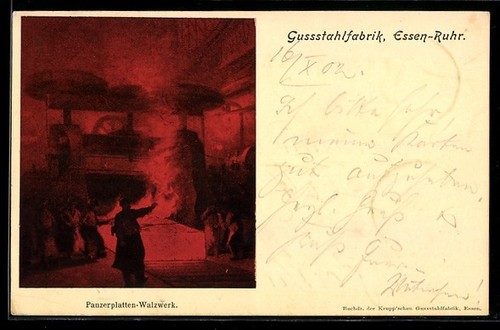 Gussstahlfabrik, Essen-Ruhr.
16/X 02.
Ich bitte sehr,
meine Karten
gut aufzuheben.
Panzerplatten-Walzwerk.
Buchdr. der Krupp'schen Gussstahlfabrik, Essen.